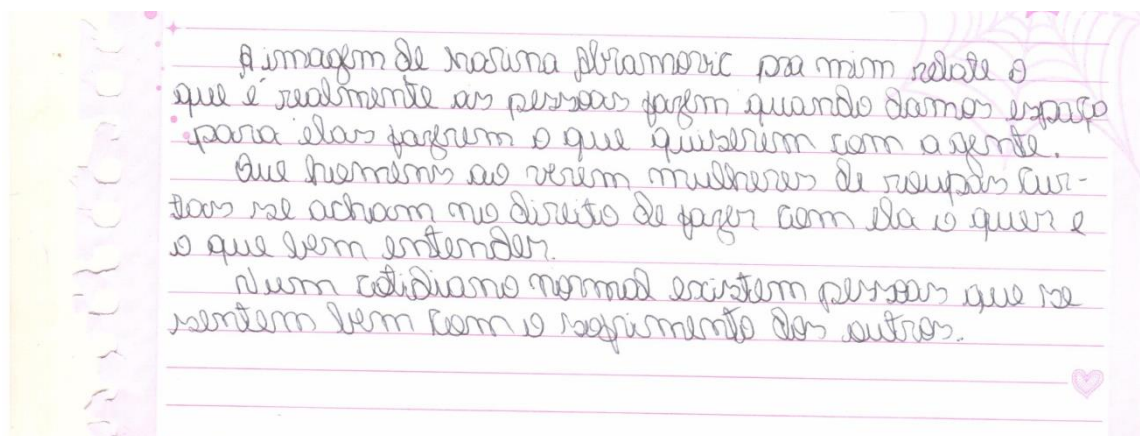 A imagem de Marina Abramovic pra mim relate o
que é realmente as pessoas fazem quando damos espaço
para elas fazerem o que quiserem com a gente.
Que homens ao verem mulheres de roupas cur-
tas se acham no direito de fazer com ela o quer e
o que bem entender.
Num cotidiano normal existem pessoas que se
sentem bem com o sofrimento dos outros.